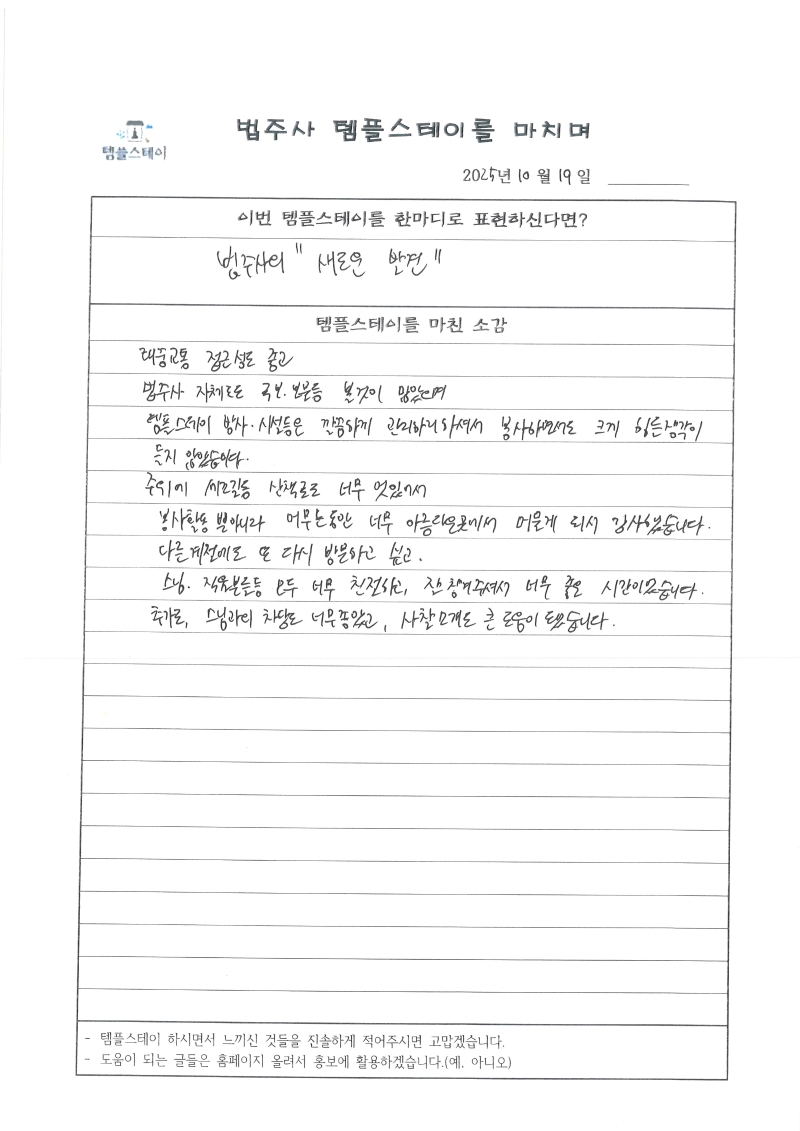 템플스테이
법주사 템플스테이를 마치며
2025년 10월 19일
이번 템플스테이를 한마디로 표현하신다면?
법주사의 "새로운 발견"
템플스테이를 마친 소감
대중교통 접근성도 좋고
법주사 자체로도 국보.보물등 볼것이 많았으며
템플스테이 방사.시설등은 깔끔하게 관리하셔서 봉사하면서도 크게 힘든생각이
들지 않았습니다.
주위에 세조길등 산책로도 너무 멋있어서
봉사활동 뿐아니라 머무는동안 너무 아름다운곳에서 머물게 되서 감사했습니다.
다른계절에도 또 다시 방문하고 싶고.
스님. 직원분들등 모두 너무 친절하고, 잘 챙겨주셔서 너무 좋은 시간이였습니다.
추가로, 스님과의 차담도 너무좋았고, 사찰소개도 큰 도움이 됐습니다.
- 템플스테이 하시면서 느끼신 것들을 진솔하게 적어주시면 고맙겠습니다.
- 도움이 되는 글들은 홈페이지 올려서 홍보에 활용하겠습니다.(예. 아니오)